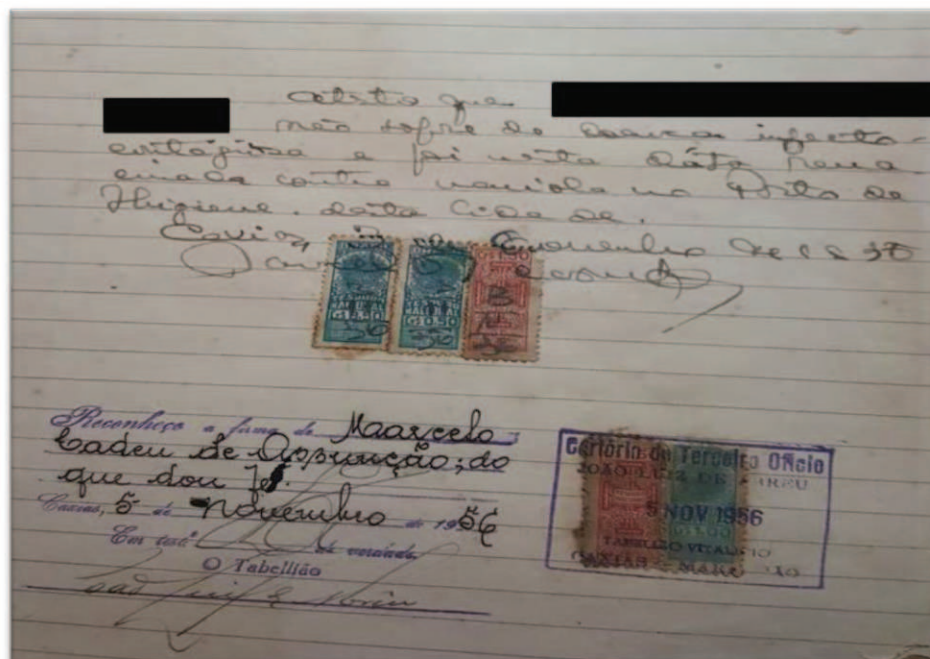 atesto que
não sofre de doença infecto-
contagiosa e foi nesta data
contra variola no Posto de
Hygiene desta Cidade.
Caxias, de
NACIONAL
NACIONAL
0,50
Reconheço a firma de Maarcelo
tadeu de Assunção; do
que dou fé.
Caxias, 5 de Novembro de 1956
Em test.º da verdade
O Tabellião
Cartório do Terceiro Oficio
JOÃO LUIZ DE ABREU
5 NOV 1956
TABELIÃO VITALICIO
CAXIAS - MARANHÃO